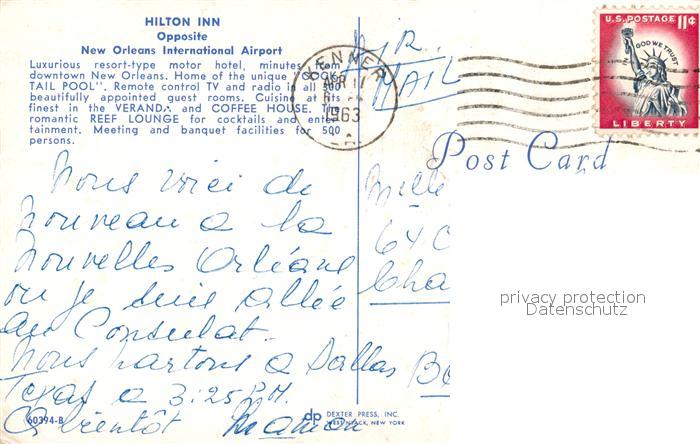 HILTON INN
Opposite
New Orleans International Airport
Luxurious resort-type motor hotel, minutes from
downtown New Orleans. Home of the unique "COCK-
TAIL POOL". Remote control TV and radio in all 300
beautifully appointed guest rooms. Cuisine at its
finest in the VERANDA and COFFEE HOUSE. The
romantic REEF LOUNGE for cocktails and enter-
tainment. Meeting and banquet facilities for 500
persons.
KENNER
APR 17
1963
LA.
AIR
MAIL
U.S. POSTAGE 11¢
IN GOD WE TRUST
LIBERTY
Post Card
Nous voici de
nouveau a la
Nouvelles Orléans
ou je suis allée
au Consulat.
Nous partons a Dallas
Texas a 3:25 P.M.
A bientôt Maman
Mlle
640
Cha
privacy protection
Datenschutz
60394-B
dp DEXTER PRESS, INC.
WEST NYACK, NEW YORK